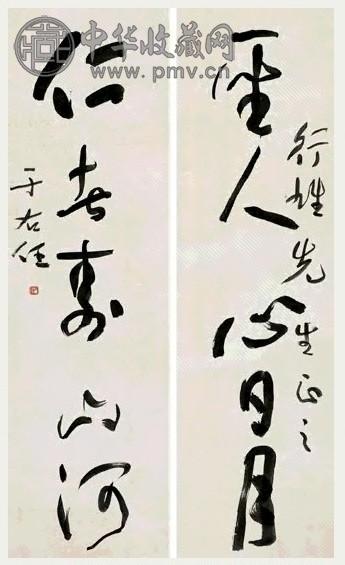 中华收藏网
www.pmv.cn
行雄先生正之
圣人心日月
仁者寿山河
于右任